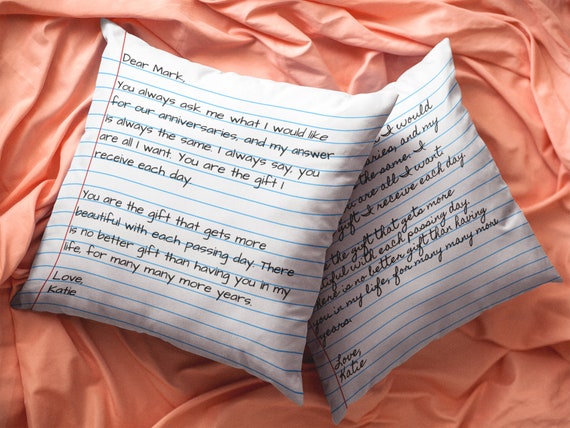 Dear Mark,
You always ask me what I would like
for our anniversaries, and my answer
is always the same. I always say, you
are all I want. You are the gift I
receive each day.
You are the gift that gets more
beautiful with each passing day. There
is no better gift than having you in my
life, for many many more years.
Love,
Katie
I would
and my
the same. I
are all I want
gift I receive each day
the gift that gets more
with each passing day.
is no better gift than having
you in my life, for many many more
years.
Love,
Katie